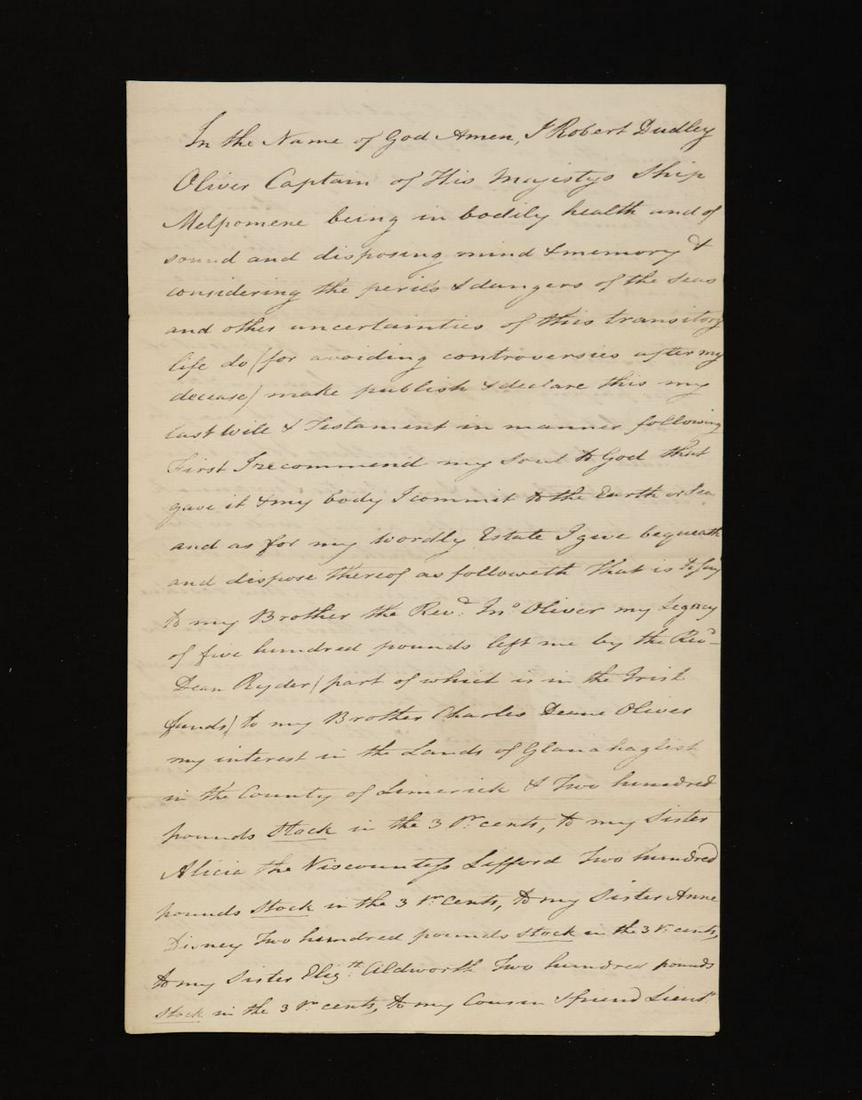 In the Name of God Amen, I Robert Dudley
Oliver Captain of His Majestys Ship
Melpomene being in bodily health and of
sound and disposing mind & memory &
considering the perils & dangers of the seas
and other uncertainties of this transitory
life do (for avoiding controversies after my
decease) make publish & declare this my
last Will & Testament in manner following
First I recommend my Soul to God that
gave it & my body I commit to the Earth or Sea
and as for my wordly Estate I give bequeath
and dispose thereof as followeth That is to say
to my Brother the Revd. Jno Oliver my Legacy
of five hundred pounds left me by the Revd
Dean Ryder (part of which is in the Irish
funds) to my Brother Charles Deane Oliver
my interest in the Lands of
in the County of Limerick & Two hundred
pounds Stock in the 3 Pr cents, to my Sister
Alicia the Viscountess Lifford Two hundred
pounds Stock in the 3 Pr Cents, to my Sister Anne
Disney Two hundred pounds Stock in the 3 Pr cents,
to my Sister Elizth Aldworth Two hundred pounds
Stock in the 3 Pr cents, to my Cousin & friend Lieut